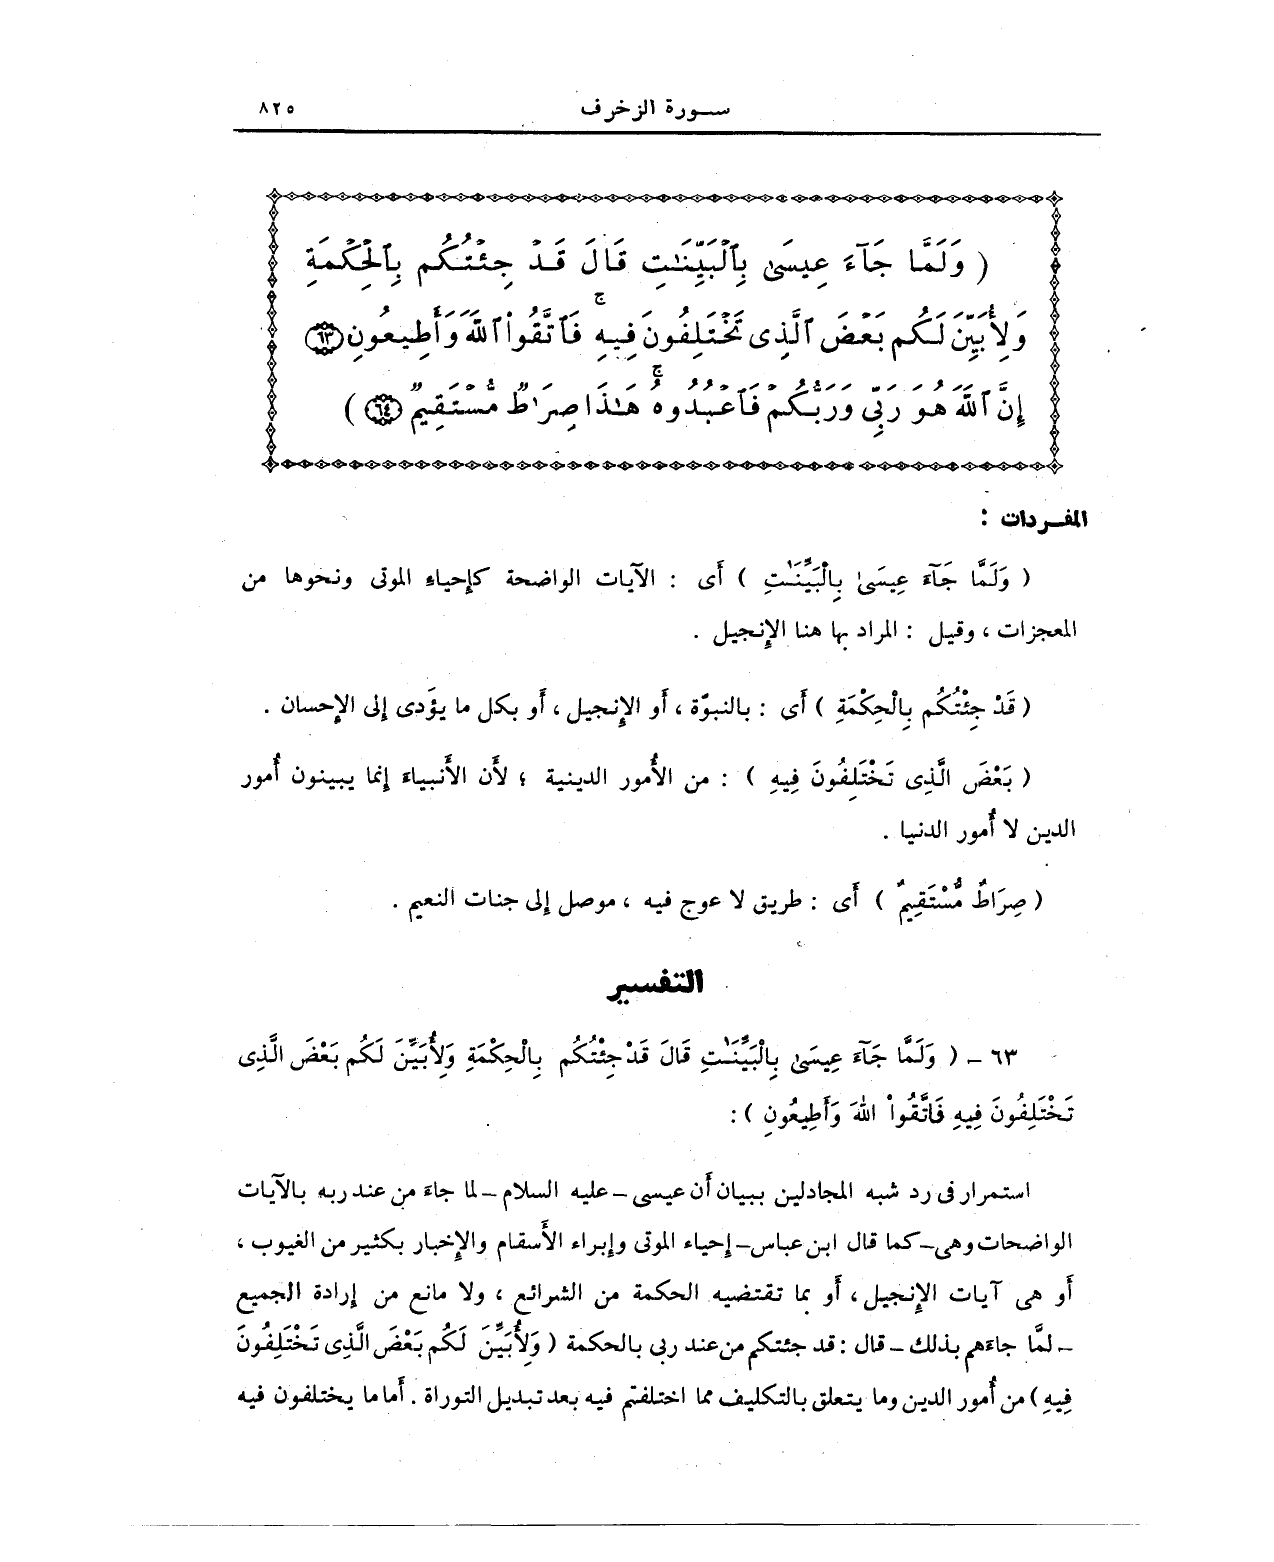 سورة الزخرف ٨٢٥
( وَلَمَّا جَآءَ عِيسَىٰ بِٱلْبَيِّنَٰتِ قَالَ قَدْ جِئْتُكُم بِٱلْحِكْمَةِ
وَلِأُبَيِّنَ لَكُم بَعْضَ ٱلَّذِى تَخْتَلِفُونَ فِيهِ ۚ فَٱتَّقُوا۟ ٱللَّهَ وَأَطِيعُونِ ٦٣
إِنَّ ٱللَّهَ هُوَ رَبِّى وَرَبُّكُمْ فَٱعْبُدُوهُ ۚ هَٰذَا صِرَٰطٌ مُّسْتَقِيمٌ ٦٤ )
المفردات :
( وَلَمَّا جَآءَ عِيسَىٰ بِالْبَيِّنَٰتِ ) أَى : الآيات الواضحة كإحياءِ الموتى ونحوها من
المعجزات ، وقيل : المراد بها هنا الإنجيل .
( قَدْ جِئْتُكُم بِالْحِكْمَةِ ) أَى : بالنبوّة ، أَو الإِنجيل ، أَو بكل ما يؤَدى إلى الإحسان .
( بَعْضَ الَّذِى تَخْتَلِفُونَ فِيهِ ) : من الأُمور الدينية ؛ لأَن الأَنبياءَ إنما يبينون أُمور
الدين لا أُمور الدنيا .
( صِرَاطٌ مُّسْتَقِيمٌ ) أَى : طريق لا عوج فيه ، موصل إلى جنات النعيم .
التفسير
٦٣ – ( وَلَمَّا جَآءَ عِيسَىٰ بِالْبَيِّنَٰتِ قَالَ قَدْ جِئْتُكُم بِالْحِكْمَةِ وَلِأُبَيِّنَ لَكُم بَعْضَ الَّذِى
تَخْتَلِفُونَ فِيهِ فَاتَّقُوا۟ اللهَ وَأَطِيعُونِ ) :
استمرار فى رد شبه المجادلين ببيان أَن عيسى – عليه السلام – لما جاءَ من عند ربه بالآيات
الواضحات وهى – كما قال ابن عباس – إحياء الموتى وإبراء الأَسقام والإخبار بكثير من الغيوب ،
أَو هى آيات الإنجيل ، أَو بما تقتضيه الحكمة من الشرائع ، ولا مانع من إرادة الجميع
– لمَّا جاءَهم بذلك – قال : قد جئتكم من عند ربى بالحكمة ( وَلِأُبَيِّنَ لَكُم بَعْضَ الَّذِى تَخْتَلِفُونَ
فِيهِ ) من أُمور الدين وما يتعلق بالتكليف مما اختلفتم فيه بعد تبديل التوراة . أَما ما يختلفون فيه